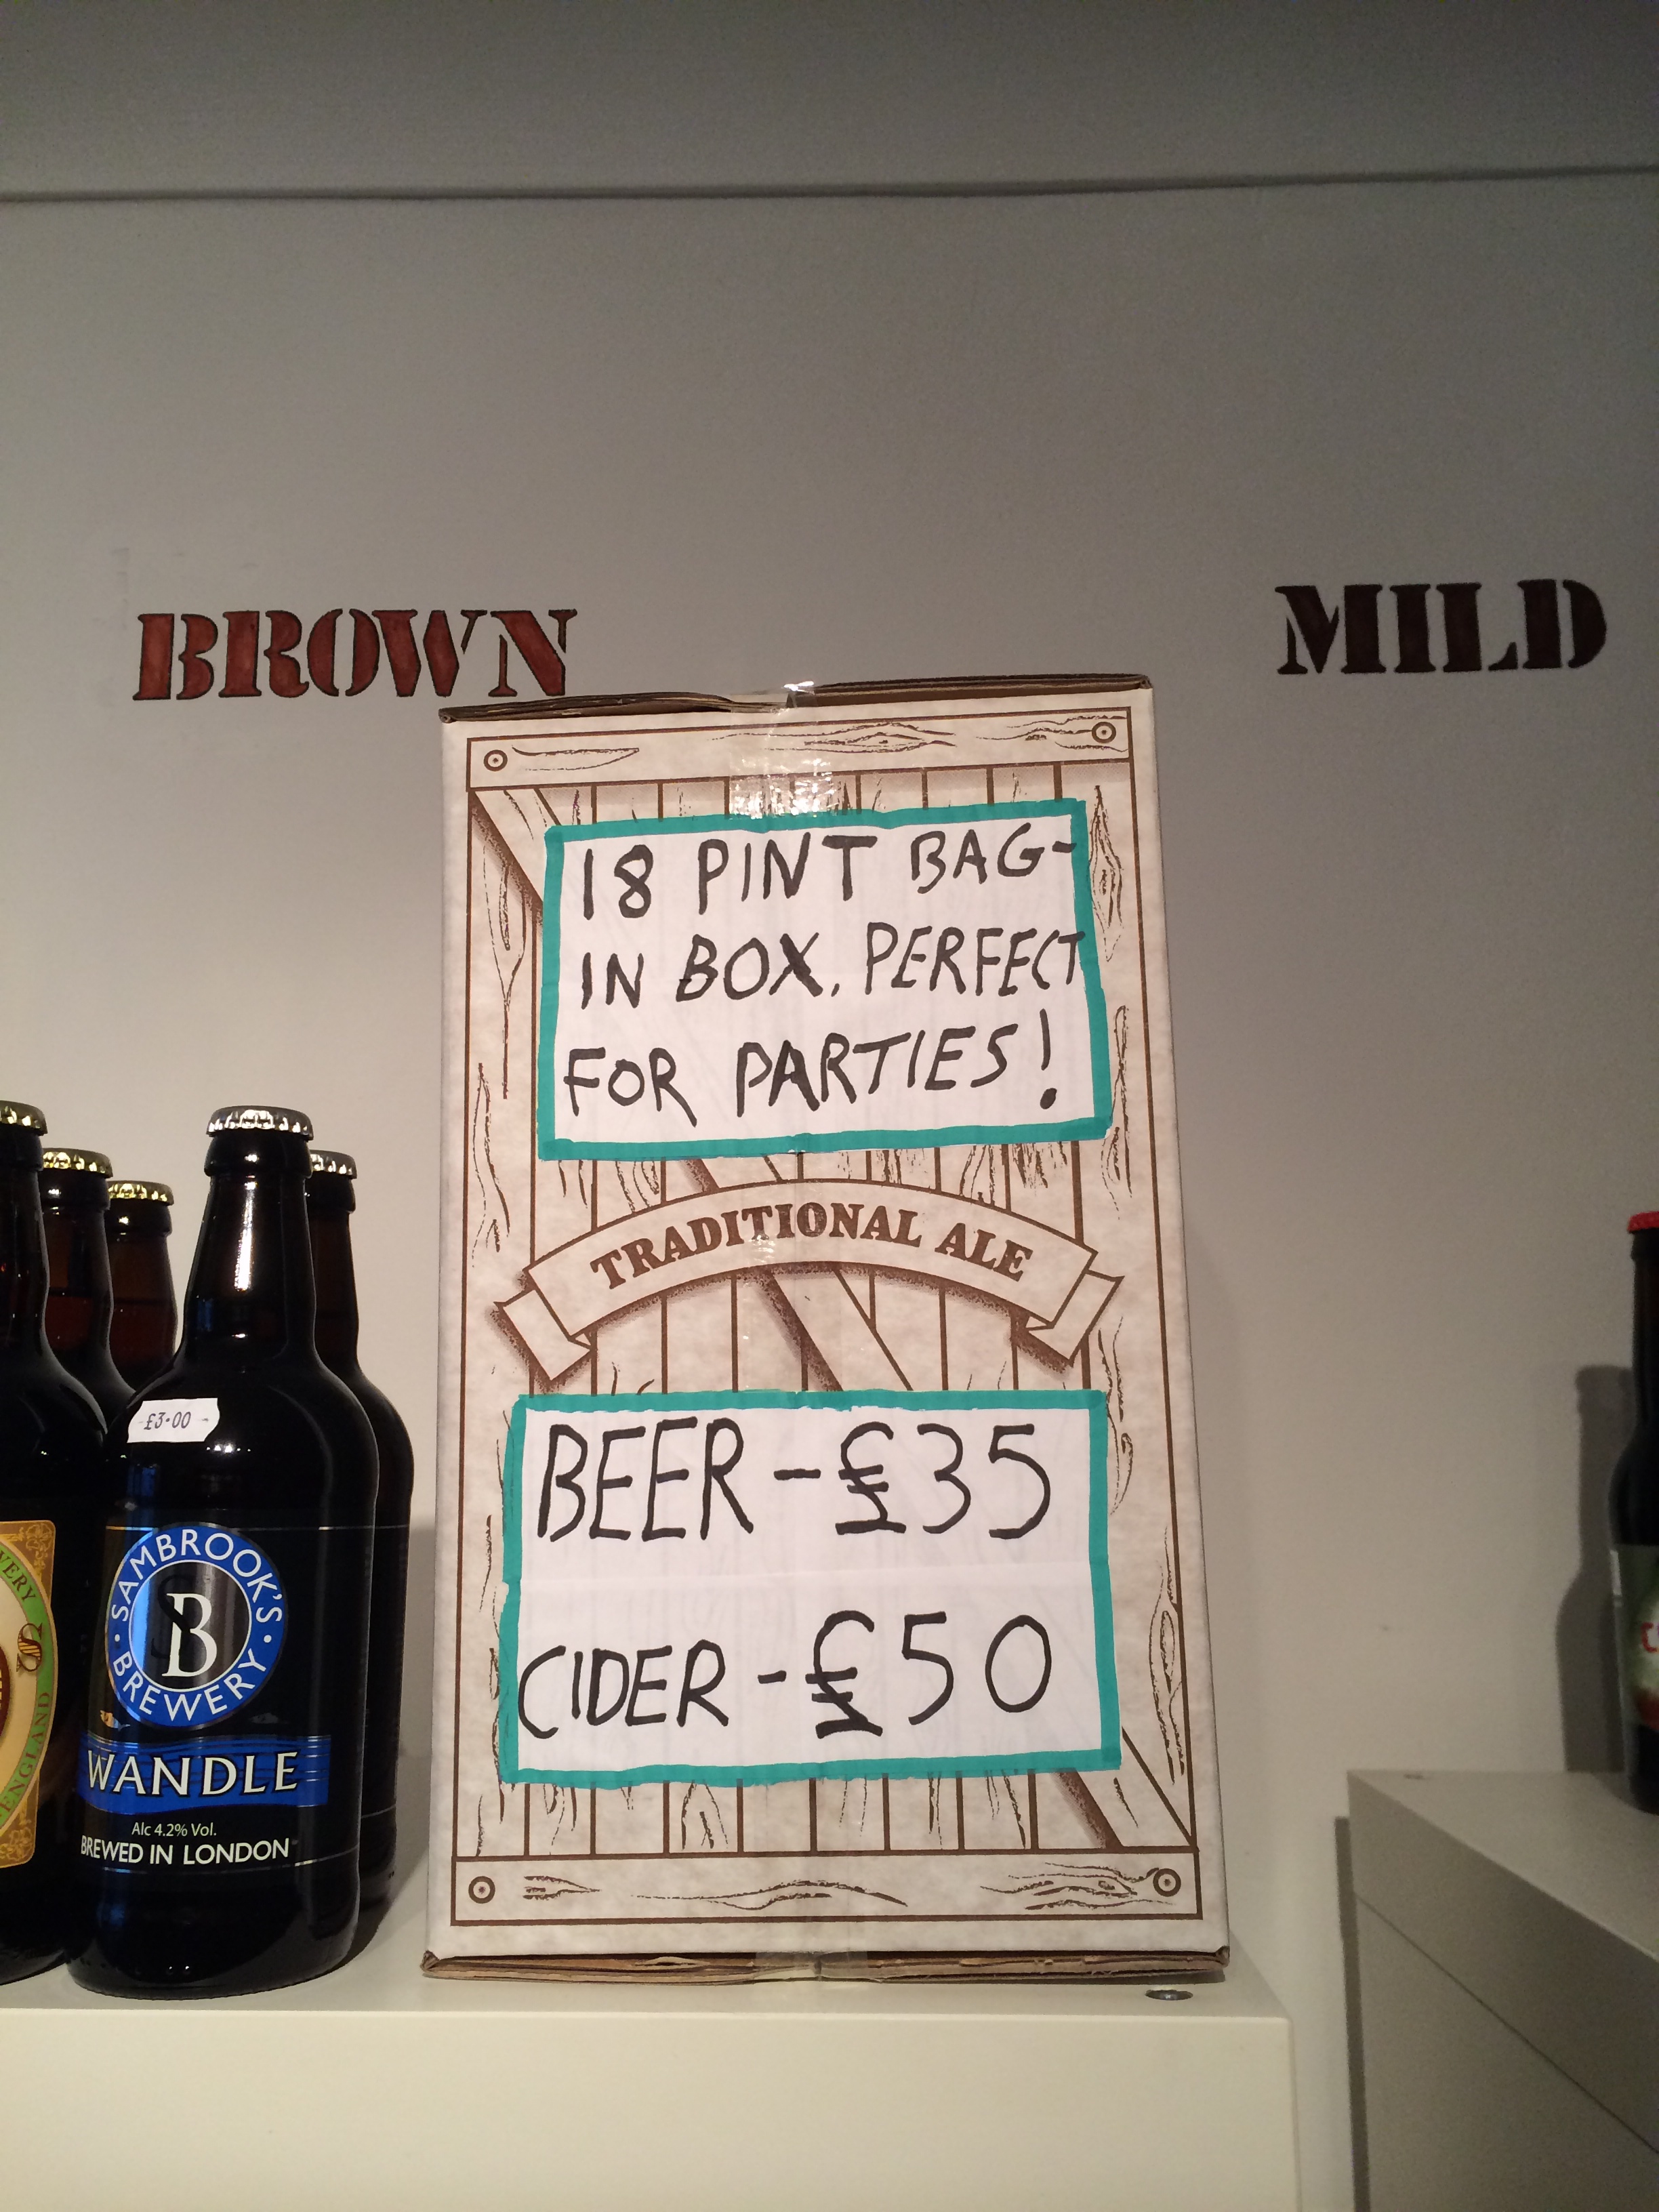 BROWN
MILD
18 PINT BAG-
IN BOX. PERFECT
FOR PARTIES!
TRADITIONAL ALE
BEER - £35
CIDER - £50
£3.00
SAMBROOK'S
BREWERY
B
WANDLE
Alc 4.2% Vol.
BREWED IN LONDON
ENGLAND